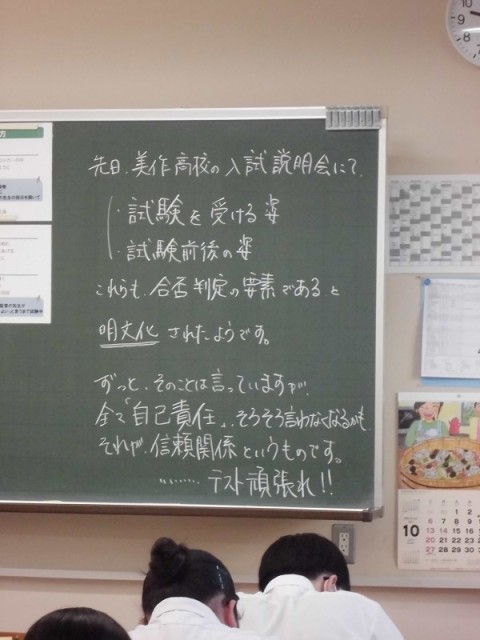 先日、美作高校の入試説明会にて、
・試験を受ける姿
・試験前後の姿
これらも、合否判定の要素であると
明文化されたようです。
ずっと、そのことは言っていますが、
全て「自己責任」、そろそろ言わなくなるかも
それが、信頼関係というものです。
……… テスト頑張れ!!
方
10
10
9
8
1 2
6 7 8 9
13 14 15 16
20 21 22 23
27 28 29 30